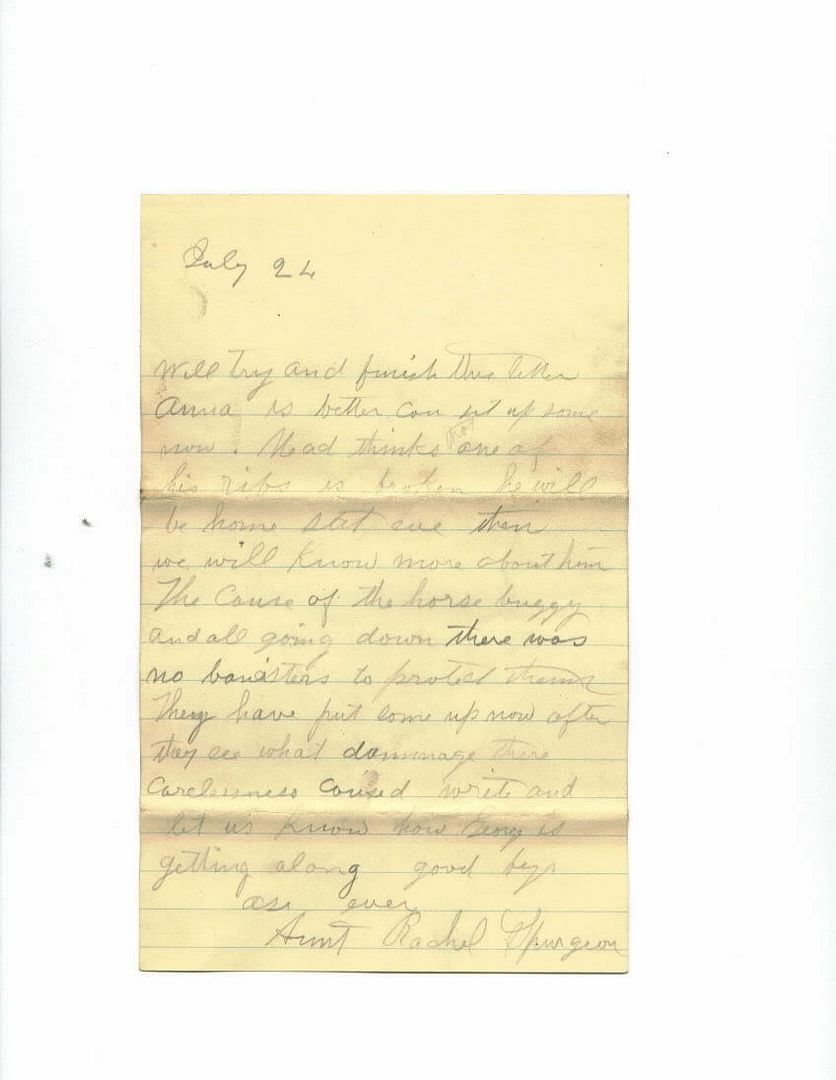 July 24
Will try and finish this letter
Anna is better can sit up some
now. Mead thinks that one of
his ribs is broken he will
be home sat eve then
we will know more about him
The Cause of the horse buggy
and all going down there was
no banisters to protect them
They have put some up now after
they see what dammage there
Carelessness caused write and
let us know how is
getting along good by
as ever
Aunt Rachel Spurgeon